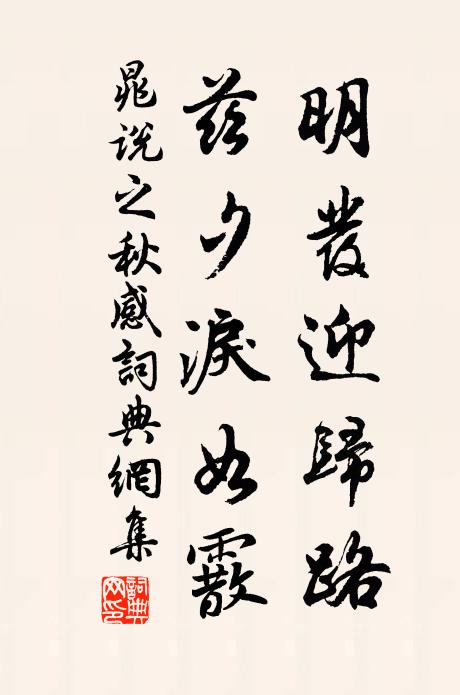 明發迎歸路
茲夕淚如霰
晁說之秋感詞典網集
詞典網印